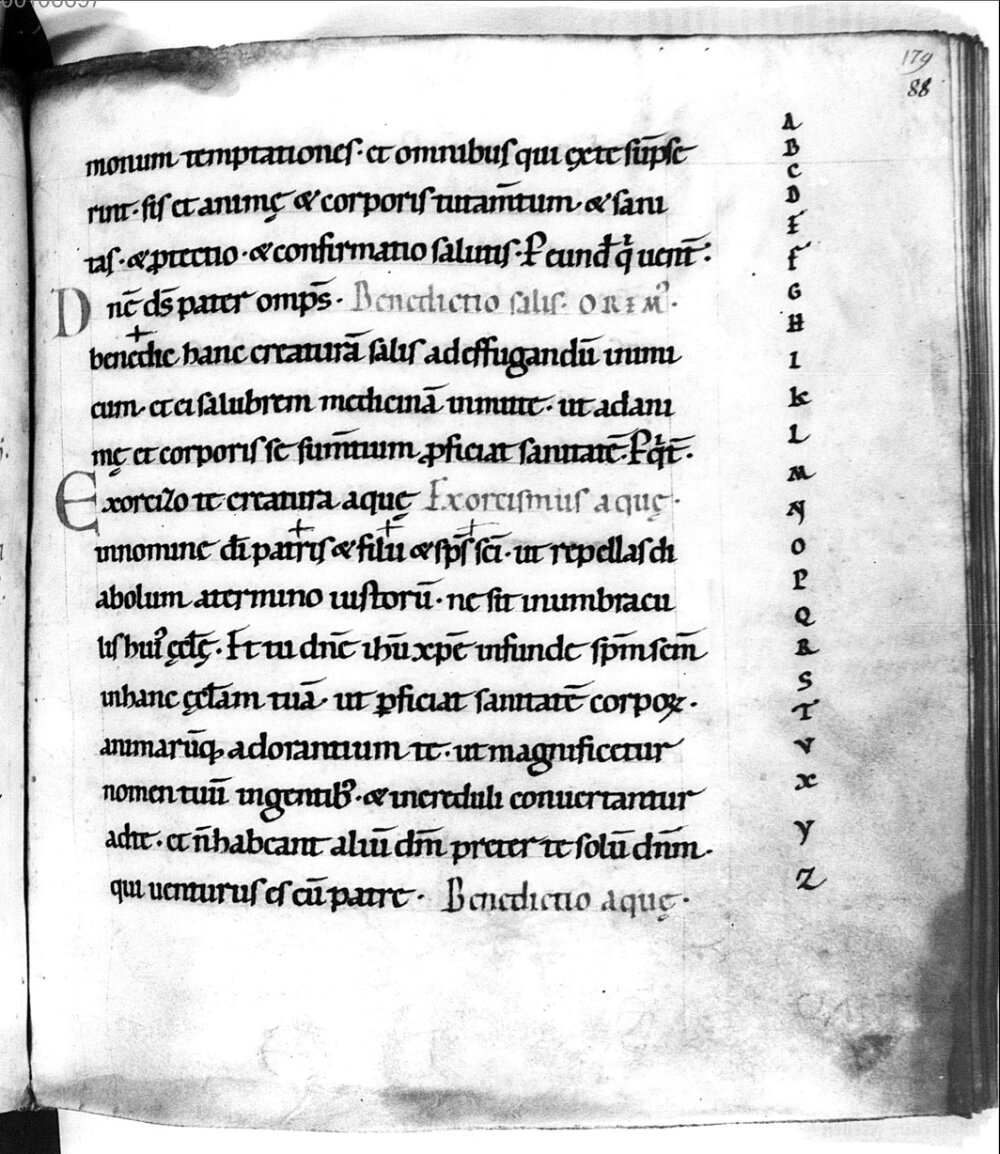 179
88
monum temptationes · et omnibus qui ex te sūpse
rint · sis et animę & corporis tutam̄tum · & sani
tas · & ptectio · & confirmatio salutis · P eund q uent̄ :
Dnē ds̄ pater omps̄ · Benedictio salis · OREM᾿ ·
benedic hanc creaturā salis ad effugandū inimi
cum · et ei salubrem medicinā inmitte · ut ad ani
mę et corporis sc̄ sum̄tium pficiat sanitatē · P q̄t̄ ·
Exorcizo te creatura aquę Exorcismus aquę ·
in nomine dī patris & filii & sps̄ sc̄i · ut repellas di
abolum a termino iustorū · ne sit in umbracu
lis hui᾿ ęctę · Et tu dnē ihū xpē infunde spm̄ scm̄
in hanc ęctam tuā · ut pficiat sanitatē corpoꝝ ·
animarūq adorantium te · ut magnificetur
nomen tuū in gentib᾿ · & increduli conuertantur
ad te · et n̄ habeant aliū dm̄ preter te solū dnm̄ ·
qui uenturus es cū patre · Benedictio aquę ·
A
B
C
D
E
F
G
H
I
K
L
M
N
O
P
Q
R
S
T
V
X
Y
Z